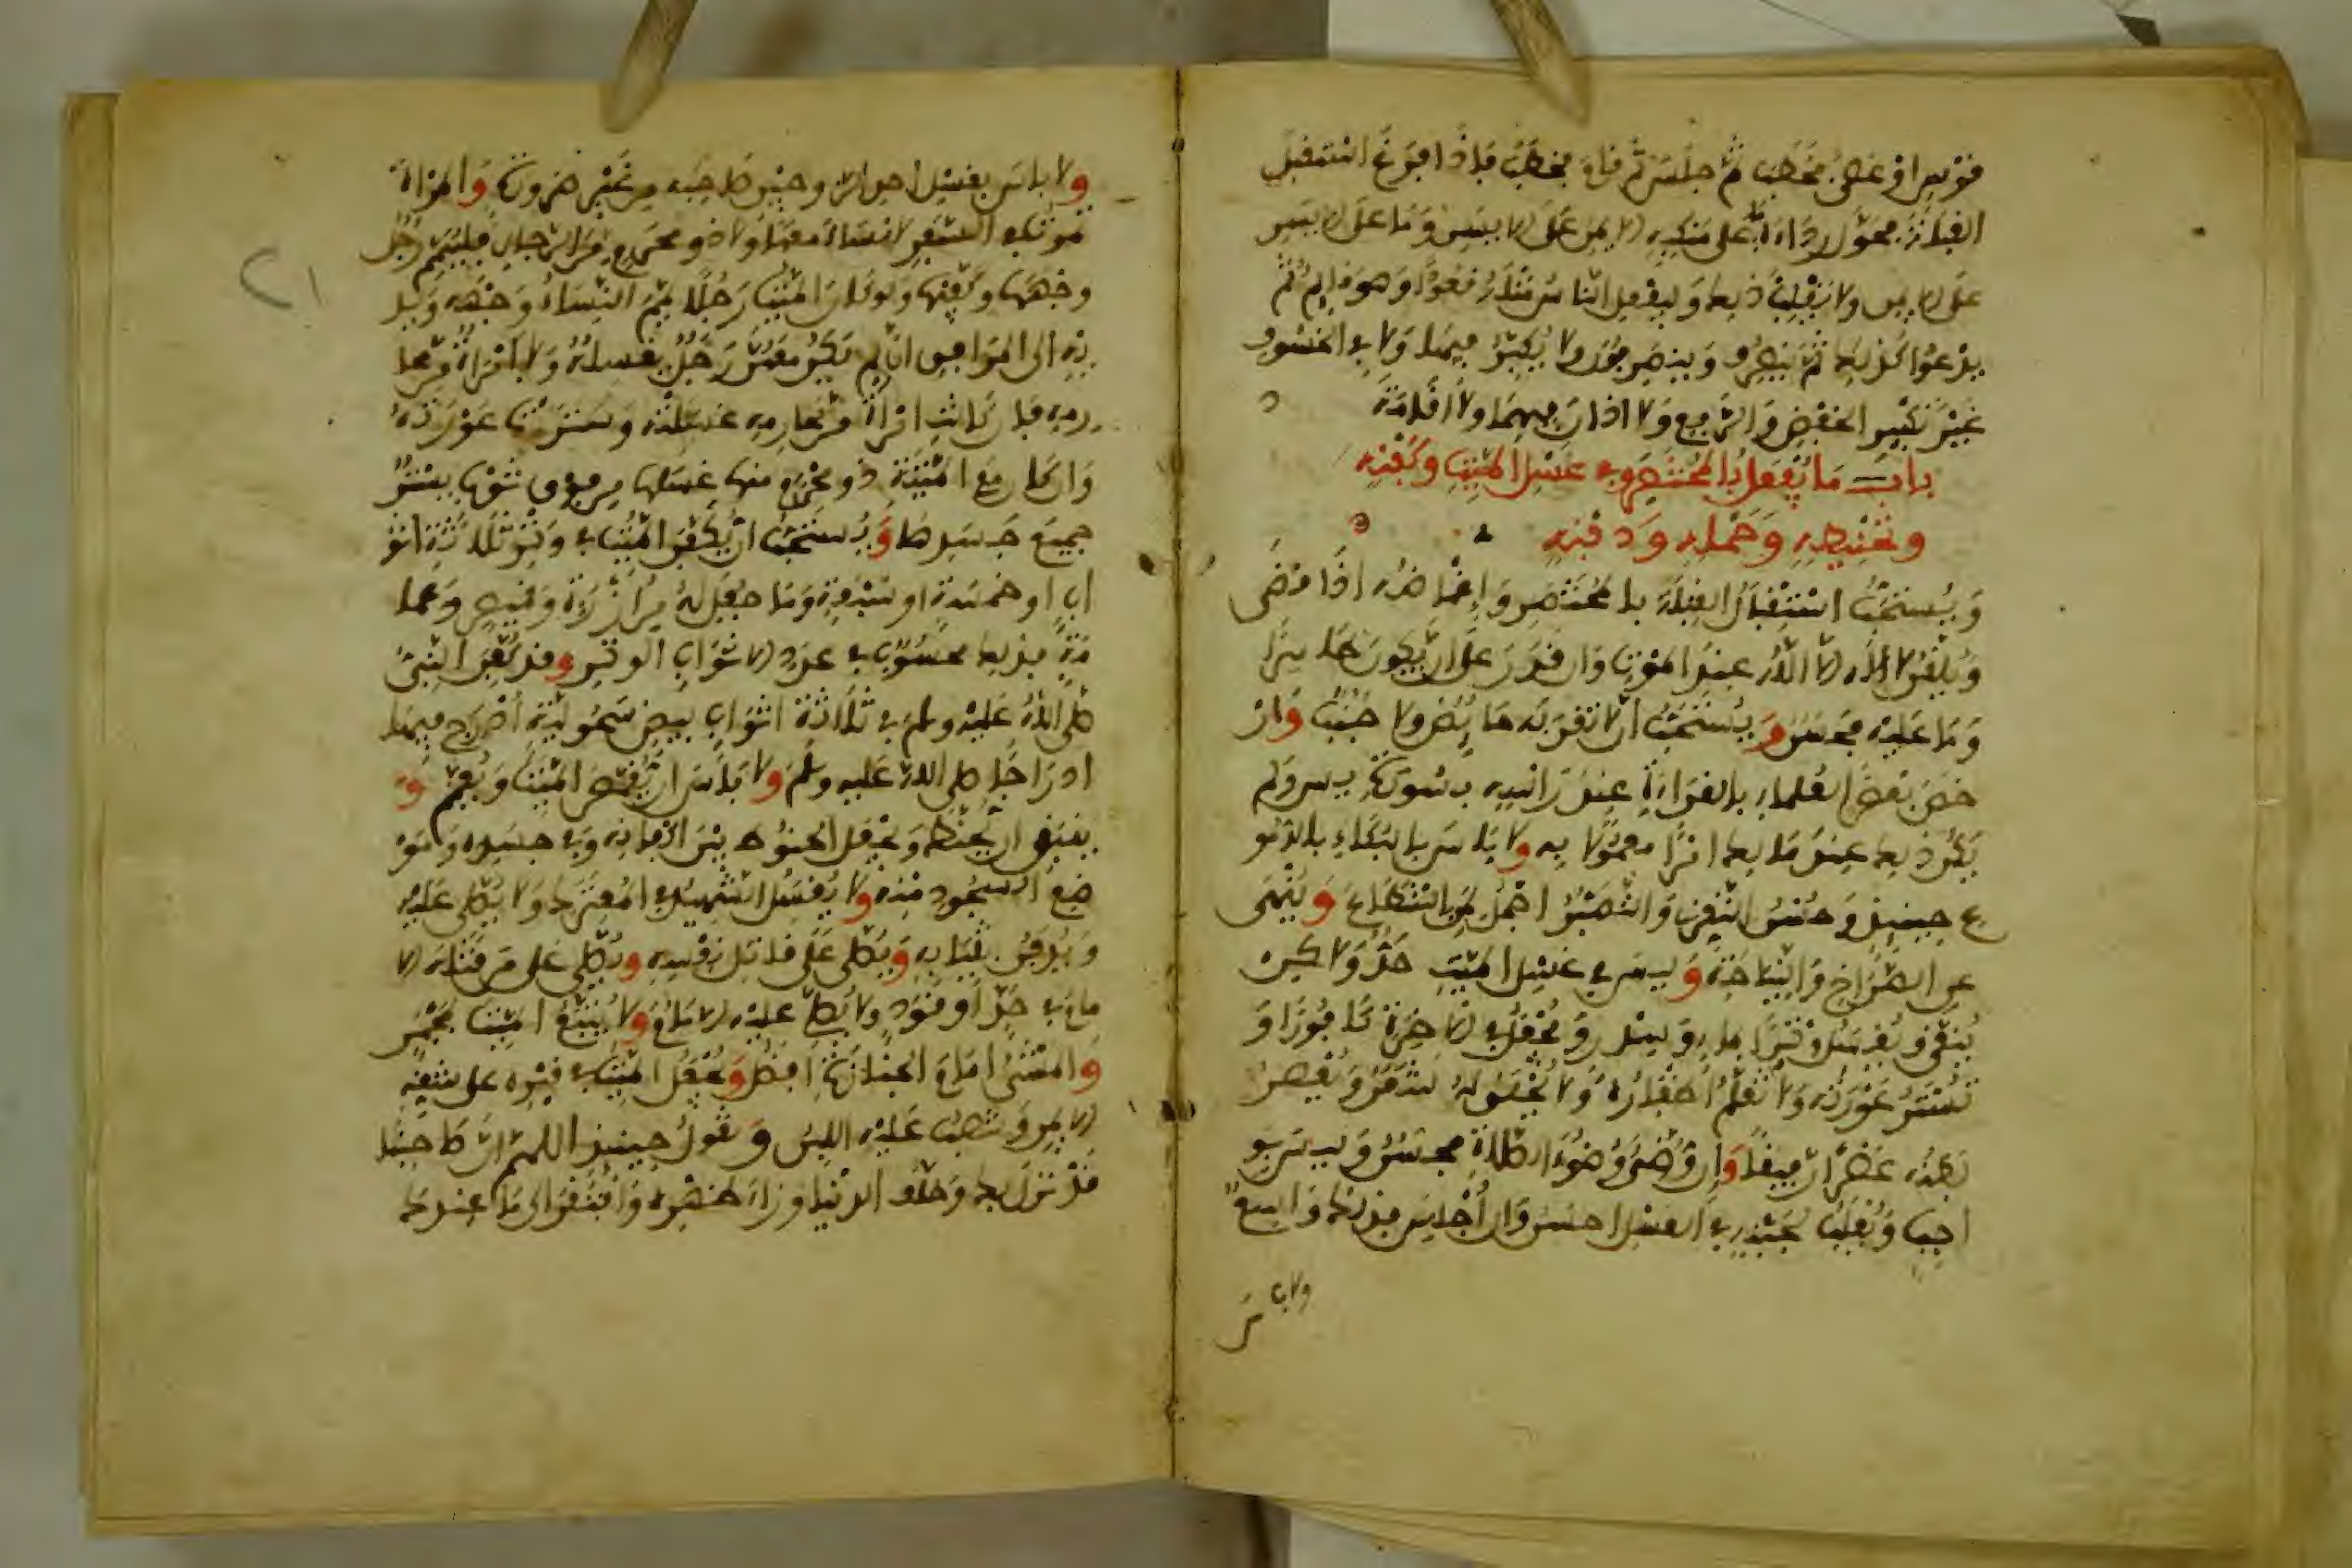 قوس او عصى فخطب ثم جلس ثم قام فخطب فإذا فرغ استقبل
القبلة فحول رداءه ما على منكبه الايمن على الايسر وما على الايسر
على الايمن ولا يقلب ذلك وليفعل الناس مثله قعودا وهو قايم ثم
يدعوا كذلك ثم ينصرف وينصرفون ولا يكبر فيها ولا في الخسوف
غير تكبير الخفض والرفع ولا اذان فيهما ولا اقامة
باب ما يفعل بالمحتضر وفي غسل الميت وكفنه
وتحنيطه وحمله ودفنه
ويستحب استقبال القبلة بالمحتضر وإغماضه اذا قضى
ويلقن لا إله الا الله عند الموت وان قدر على ان يكون طاهرا
وما عليه فحسن ويستحب ان لا تقربه حايض ولا جنب وار
خص بعض العلماء بالقراءة عند رأسه بسورة يس ولم
يكن ذلك عند مالك امرا معمولا به ولا باس بالبكاء بالدمو
ع حينيذ وحسن التعزي والتصبر اجمل لمن استطاع وينهى
عن الصراخ والنياحة وليس في غسل الميت حد ولاكن
ينقى ويغسل وترا بماء وسدر ويجعل في الاخرة كافورا و
تستر عورته ولا تقلم اظفاره ولا يحلق له شعر ويعصر
بطنه عصرا رفيقا وإن وضئ وضوء الصلاة فحسن وليس بو
اجب ويقلب لجنبه في الغسل احسن وان أجلس فذلك واسع
ولا باس
ولا باس بغسل احد الزوجين صاحبه من غير ضرورة والمراة
تموت في السفر لا نساء معها ولا ذو محرم من الرجال فلييمم رجل
وجهها وكفيها ولو كان الميت رجلا يمم النساء وجهه ويد
يه الى المرافق ان لم يكن معهن رجل يغسله ولا امراة من محا
رمه فان كانت امراة من محارمه غسلته وسترت عورته
وان كان مع الميتة ذو محرم منها غسلها من فوق ثوب يستر
جميع جسدها ويستحب ان يكفن الميت في وتر ثلاثة اثو
اب او خمسة او سبعة وما جعل له من أزرة وقميص وعما
مة فذلك محسوب في عدد الاثواب الوتر وقد كفن النبي
صلى الله عليه وسلم في ثلاثة اثواب بيض سحولية أدرج فيها
ادراجا صلى الله عليه وسلم ولا باس ان يقمص الميت ويعمم و
ينبغي ان يحنط ويجعل الحنوط بين اكفانه وفي جسده ومو
ضع السجود منه ولا يغسل الشهيد في المعترك ولا يصلى عليه
ويدفن بثيابه ويصلى على قاتل نفسه ويصلى على من قتله الا
مام في حد او قود ولا يصلي عليه الامام ولا يتبع الميت بمجمر
والمشي امام الجنازة افضل ويجعل الميت في قبره على شقه
الايمن وينصب عليه اللبن ويقول حينيذ اللهم ان صاحبنا
قد نزل بك وخلف الدنيا وراء ظهره وافتقر الى ما عندك